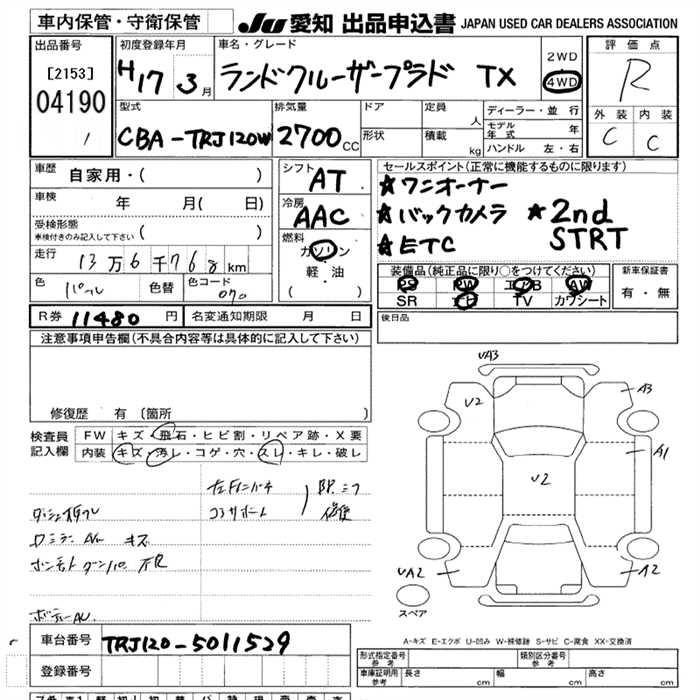 車内保管・守衛保管
JU 愛知 出品申込書 JAPAN USED CAR DEALERS ASSOCIATION
出品番号
[2153]
04190
1
初度登録年月
H17 3月
車名・グレード
ランドクルーザープラド TX
2WD
4WD
評価点
R
外装 内装
C C
型式
CBA-TRJ120W
排気量
2700CC
ドア
形状
定員
人
積載
kg
ディーラー・並行
モデル年式 年
ハンドル 左・右
車歴
自家用・( )
車検
年 月( 日)
受検形態
車検付きのみ記入して下さい ( )
走行
13万6千768km
色
パール
色替
色コード
070
シフト
AT
冷房
AAC
燃料
ガソリン
軽・油
( )
セールスポイント(正常に機能するものに限ります)
★ワンオーナー
★バックカメラ ★2nd
★ETC STRT
装備品(純正品に限り○をつけてください)
PS PW エアB AW
SR ナビ TV カワシート
新車保証書
有・無
R券 11480円
名変通知期限 月 日
後日品
注意事項申告欄(不具合内容等は具体的に記入して下さい)
修復歴 有 [箇所
検査員記入欄
FW キズ・飛石・ヒビ割・リペア跡・X要
内装 キズ・汚レ・コゲ・穴・スレ・キレ・破レ
コアサポート
キズ
UA3
U2
A3
A1
U2
UA2
A2
スペア
A-キズ E-エクボ U-凹み W-補修跡 S-サビ C-腐食 XX-交換済
車台番号
TRJ120-5011529
登録番号
形式指定番号
参考
類別区分番号
参考
車庫証明用
参考
長さ cm
幅 cm
高さ cm